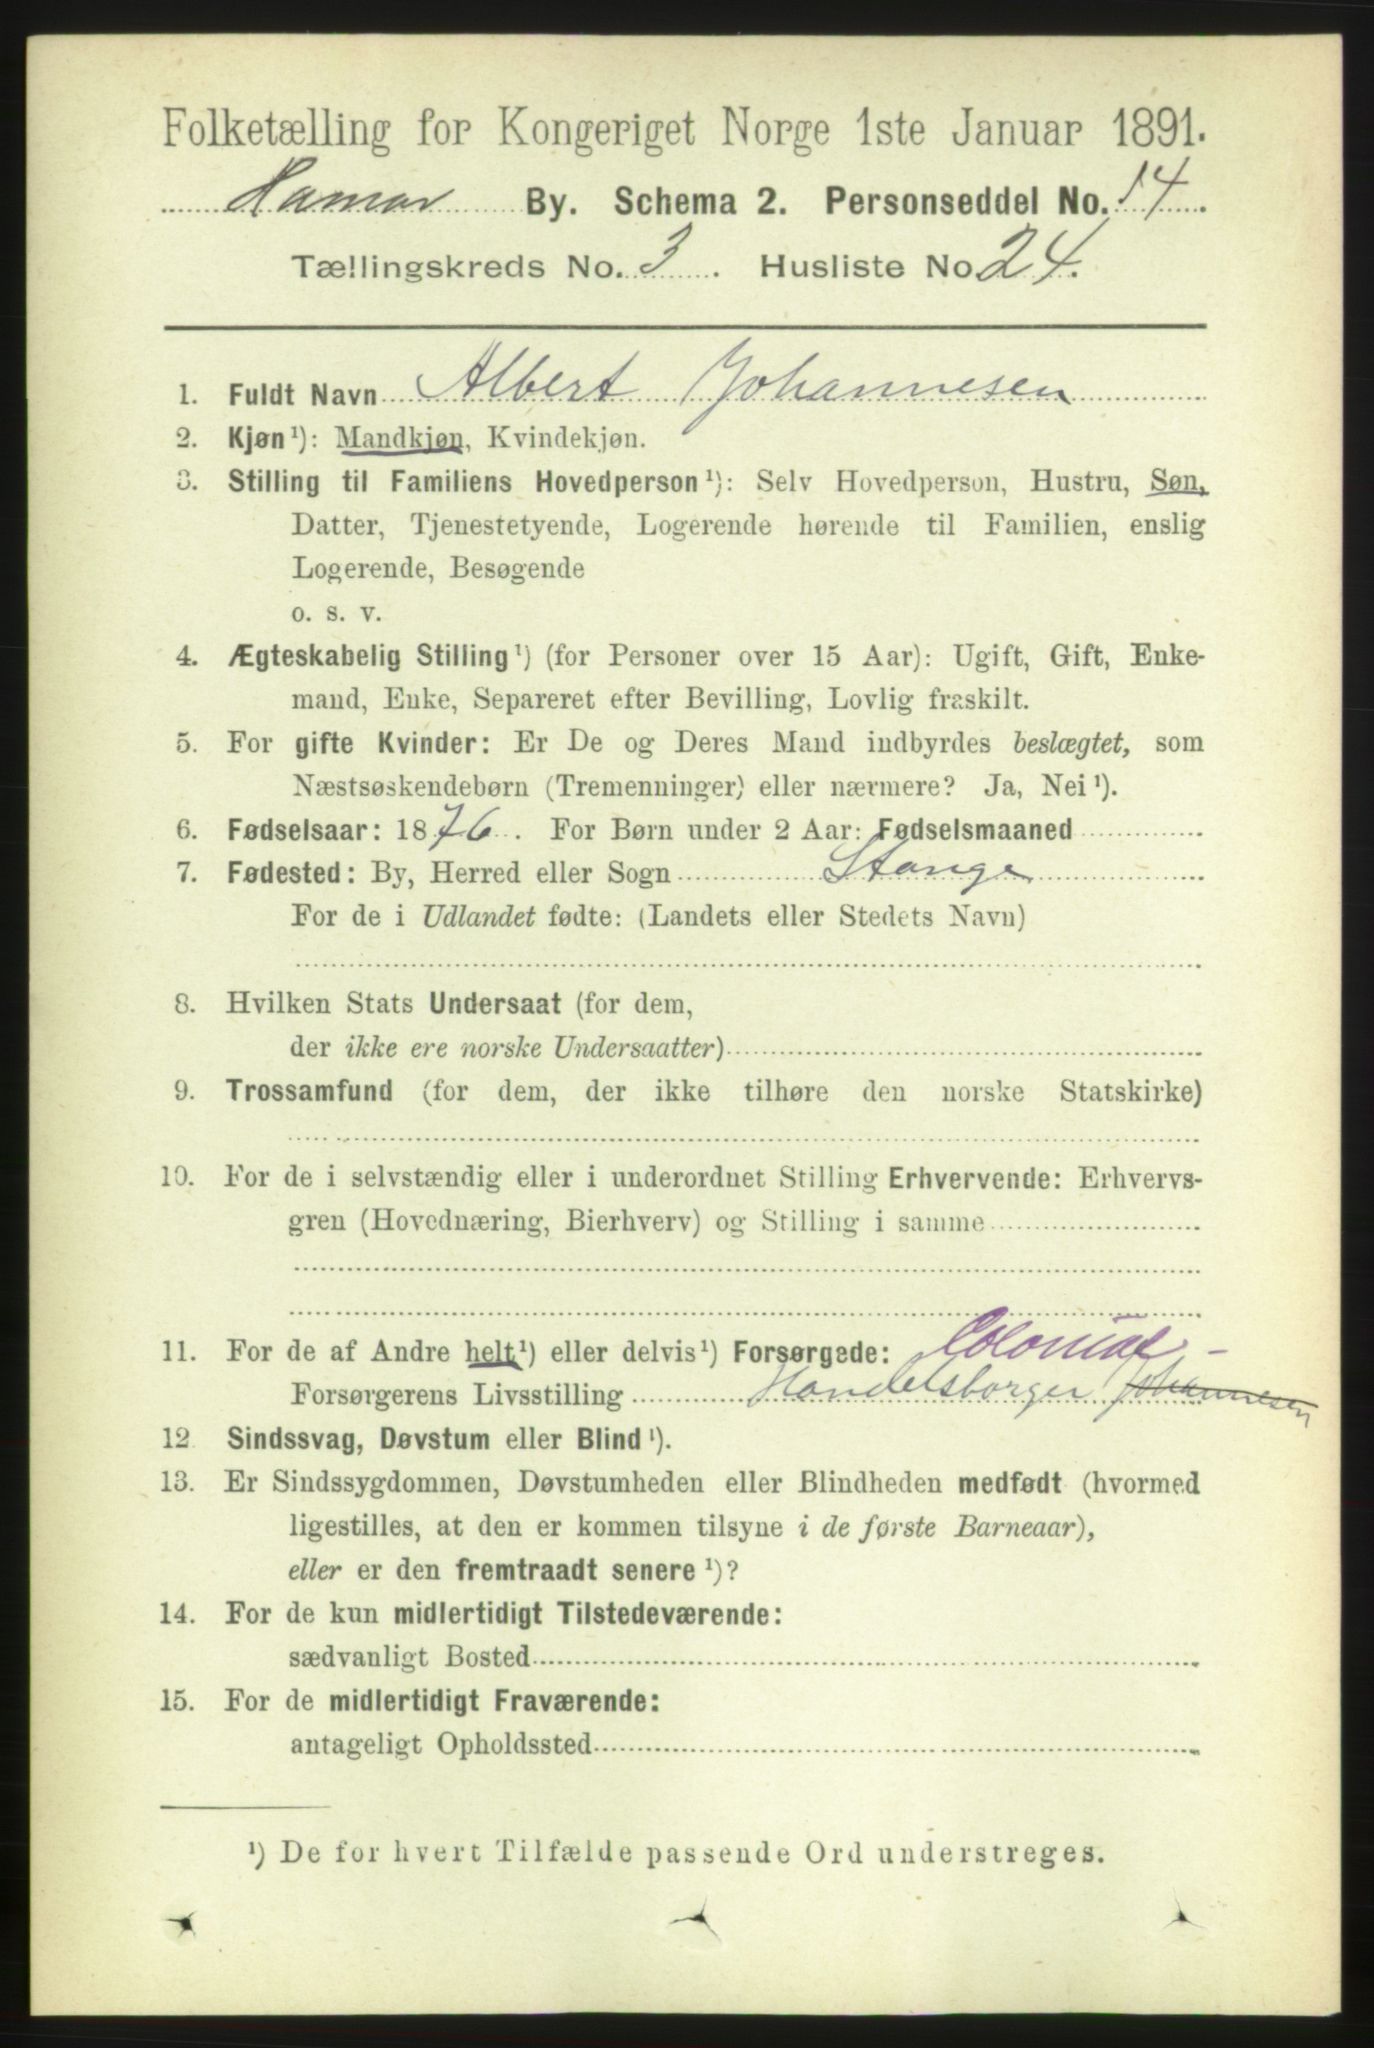 Folketælling for Kongeriget Norge 1ste Januar 1891.
Hamar By. Schema 2. Personseddel No. 14
Tællingskreds No. 3. Husliste No 24.
1. Fuldt Navn Albert Johannesen
2. Kjøn ¹): Mandkjøn, Kvindekjøn.
3. Stilling til Familiens Hovedperson ¹): Selv Hovedperson, Hustru, Søn,
Datter, Tjenestetyende, Logerende hørende til Familien, enslig
Logerende, Besøgende
o. s. v.
4. Ægteskabelig Stilling ¹) (for Personer over 15 Aar): Ugift, Gift, Enke-
mand, Enke, Separeret efter Bevilling, Lovlig fraskilt.
5. For gifte Kvinder: Er De og Deres Mand indbyrdes beslægtet, som
Næstsøskendebørn (Tremenninger) eller nærmere? Ja, Nei ¹).
6. Fødselsaar: 1876. For Børn under 2 Aar: Fødselsmaaned
7. Fødested: By, Herred eller Sogn Stange
For de i Udlandet fødte: (Landets eller Stedets Navn)
8. Hvilken Stats Undersaat (for dem,
der ikke ere norske Undersaatter)
9. Trossamfund (for dem, der ikke tilhøre den norske Statskirke)
10. For de i selvstændig eller i underordnet Stilling Erhvervende: Erhvervs-
gren (Hovednæring, Bierhverv) og Stilling i samme
11. For de af Andre helt ¹) eller delvis ¹) Forsørgede: Colonial-
Forsørgerens Livsstilling Handelsborger Johannesen
12 Sindssvag, Døvstum eller Blind ¹).
13. Er Sindssygdommen, Døvstumheden eller Blindheden medfødt (hvormed
ligestilles, at den er kommen tilsyne i de første Barneaar),
eller er den fremtraadt senere ¹)?
14. For de kun midlertidigt Tilstedeværende:
sædvanligt Bosted
15. For de midlertidigt Fraværende:
antageligt Opholdssted
¹) De for hvert Tilfælde passende Ord understreges.